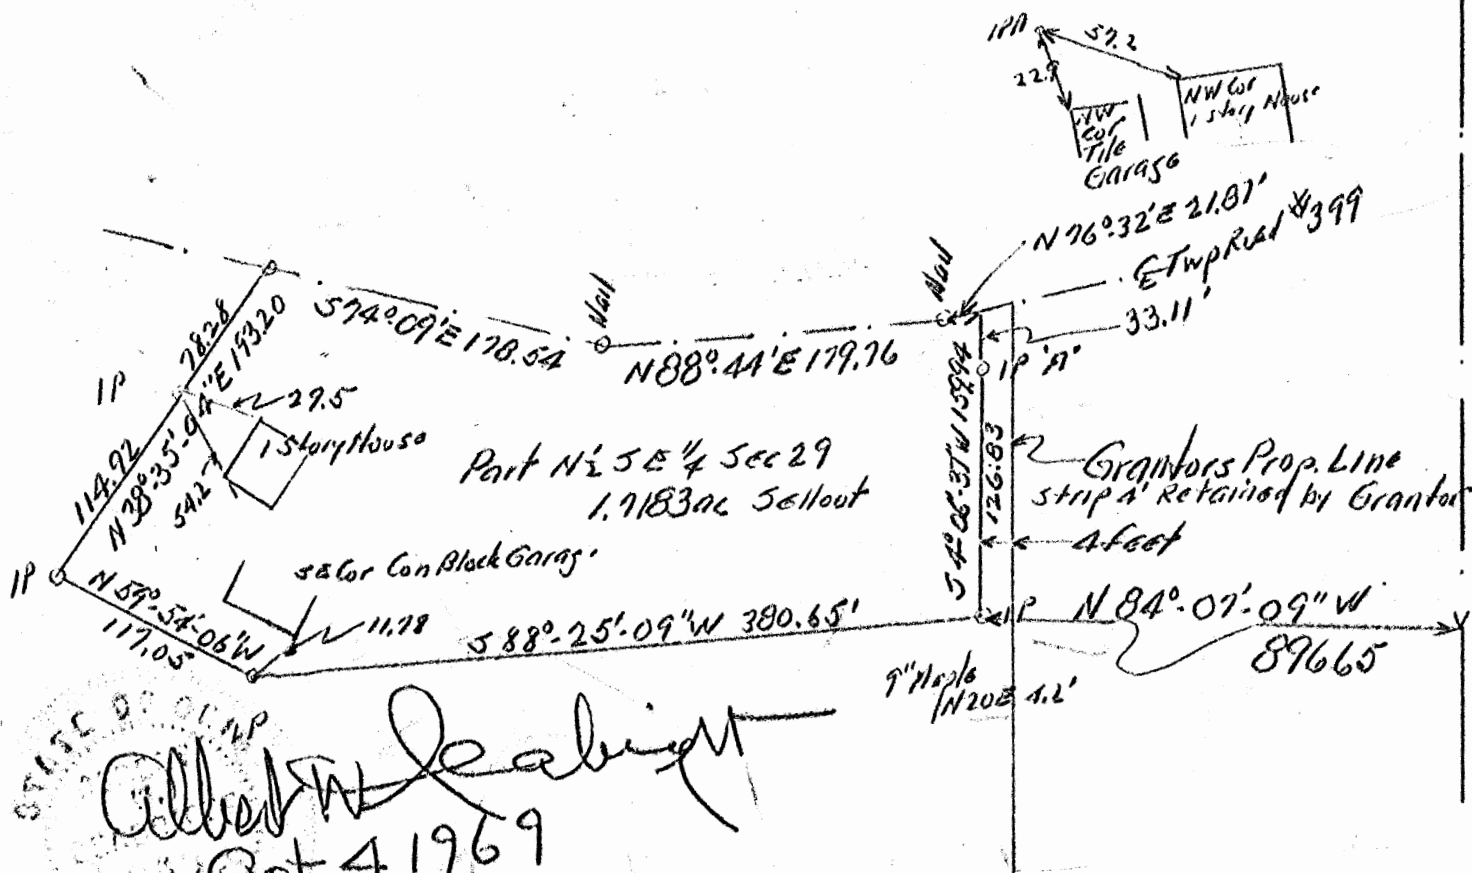 IPA
57.2
22.9
NW Cor
1 Story House
NW
Cor
Tile
Garage
N 76°-32' E 21.87'
Twp Road #399
33.11'
Nail
Nail
S 74°-09' E 178.54
N 88°-44' E 179.76
78.28
N 38°-35'-04" E 193.20
IP
114.92
27.5
54.2
1 Story House
Part N½ SE ¼ Sec 29
1.7183 ac Sellout
S 4°-06'-37" W 159.94
126.83
IP 'A'
Grantors Prop. Line
Strip 4' Retained by Grantor
4 feet
IP
N 59°-54'-06" W
117.05
SE Cor Con Block Garag.
11.78
S 88°-25'-09" W 380.65'
IP
N 84°-07'-09" W
896.65
9" Maple
N20E 4.2'
IP
STATE OF OHIO
Albert W
Oct 4 1969